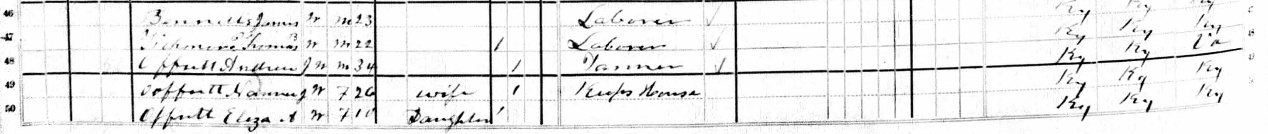 46 Bennett James W M 23 Laborer Ky Ky Ky
47 Thomas W M 22 1 Laborer Ky Ky Ky
48 Offutt Andrew J W M 34 1 Ky Ky Va
49 Offutt Nannie J W F 26 wife 1 Keeps House Ky Ky Ky
50 Offutt Eliza A W F Daughter 1 Ky Ky Ky